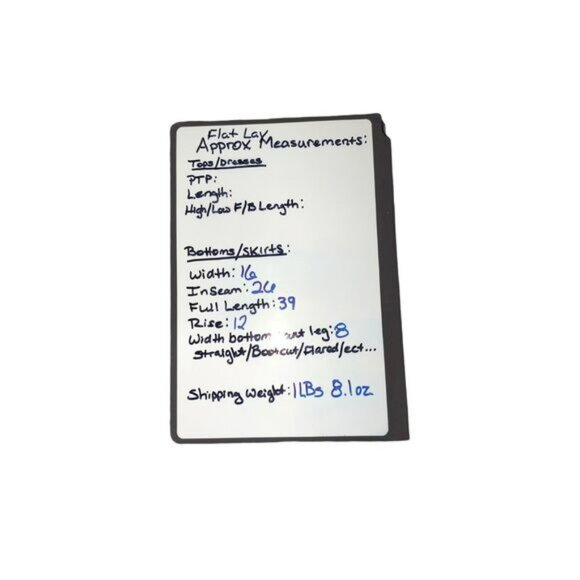 Flat Lay
Approx Measurements:
Tops/Dresses
PTP:
Length:
High/Low F/B Length:
Bottoms/Skirts:
Width: 16
Inseam: 26
Full Length: 39
Rise: 12
Width bottom leg: 8
Straight/Bootcut/Flared/ect...
Shipping Weight: 1 LBs 8.1oz